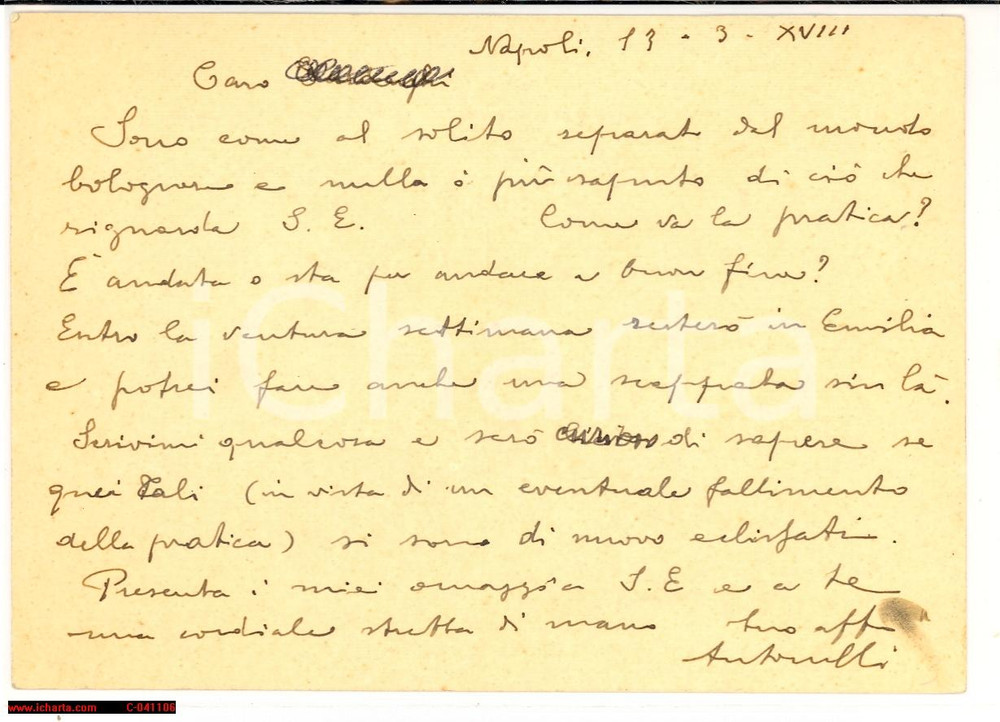 Napoli, 13 - 3 - XVIII
Caro
Sono come al solito separato dal mondo
bolognese e nulla ò più saputo di ciò che
riguarda S. E. Come va la pratica?
È andata o sta per andare a buon fine?
Entro la ventura settimana resterò in Emilia
e potrei fare anche una scappata sin là.
Scrivimi qualcosa e sarò di sapere se
quei tali (in vista di un eventuale fallimento
della pratica) si sono di nuovo eclissati.
Presenta i miei omaggi a S. E e a te
una cordiale stretta di mano tuo aff
Antonelli
iCharta
www.icharta.com C-041106